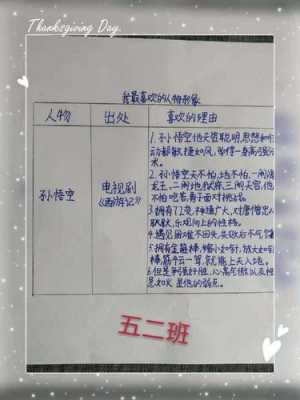 Thanksgiving Day.
我最喜欢的人物形象
人物 出处 喜欢的理由
孙悟空 电视剧《西游记》
1.孙悟空他天资聪明,思想和行
动都敏捷如风,学得一身高强
术。
2.孙悟空天不怕,地不怕,一闹
龙王,二闹地狱,三闹天宫,他
不怕吃苦,勇于面对挑战。
3.拥有72变,神通广大,对唐僧忠心
耿耿,乐观向上的性格。
4.遇见困难不回头,失败后不气馁
5.拥有金箍棒,缩小如针,放大如
棒,筋斗云一驾,就能上天入地。
6.但是争强好胜,心高气傲以及性
急如火是他的弱点。
五二班